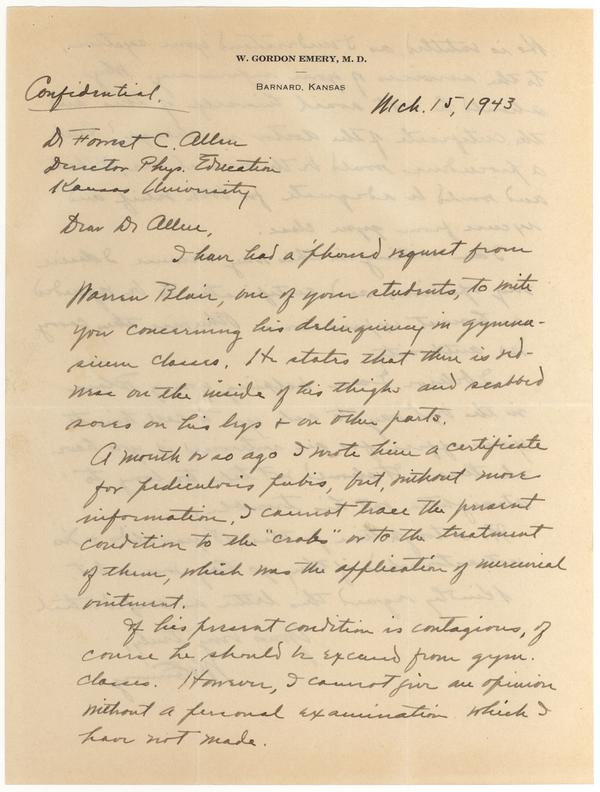 W. GORDON EMERY, M. D.
BARNARD, KANSAS
Confidential.
Mch. 15, 1943
Dr Forrest C. Allen
Director Phys. Education
Kansas University
Dear Dr Allen,
I have had a 'phoned request from
Warren Blair, one of your students, to write
you concerning his delinquency in gymna-
sium classes. He states that there is red-
ness on the inside of his thighs and scabbed
sores on his legs & on other parts.
A month or so ago I wrote him a certificate
for pediculosis pubis, but, without more
information, I cannot trace the present
condition to the "crabs" or to the treatment
of them, which was the application of mercurial
ointment.
If his present condition is contagious, of
course he should be excused from gym.
classes. However, I cannot give an opinion
without a personal examination which I
have not made.